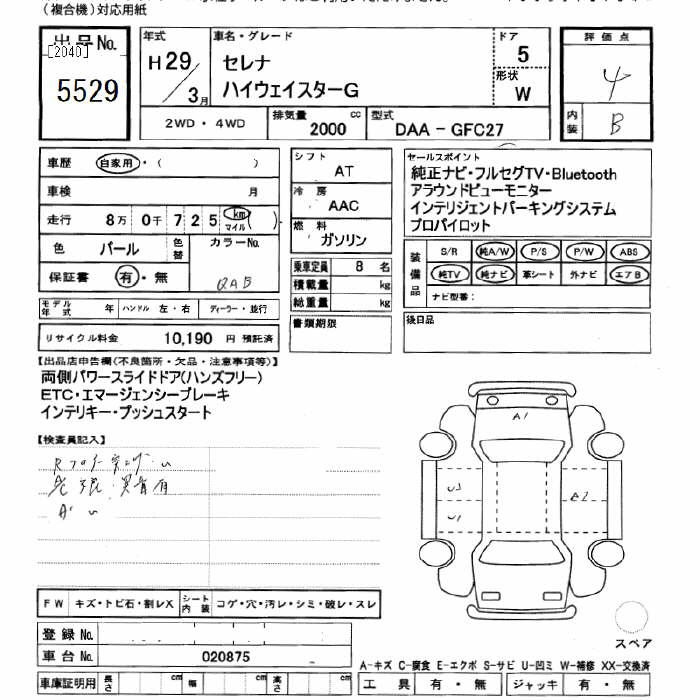 (複合機)対応用紙
出品No.
[2040]
5529
年式
H29/3月
車名・グレード
セレナ
ハイウェイスターG
ドア
5
形状
W
評価点
4
内装
B
2WD・4WD
排気量
2000 cc
型式
DAA-GFC27
車歴 自家用・( )
車検 月
走行 8万0千725 km マイル ( )
色 パール 色替
カラーNo.
QAB
保証書 有・無
シフト
AT
冷房
AAC
燃料
ガソリン
乗車定員 8 名
積載量 kg
総重量 kg
書類期限
セールスポイント
純正ナビ・フルセグTV・Bluetooth
アラウンドビューモニター
インテリジェントパーキングシステム
プロパイロット
装備品
S/R 純A/W P/S P/W ABS
純TV 純ナビ 革シート 外ナビ エアB
ナビ型番:
後日品
モデル年式 年 ハンドル 左・右 ディーラー・並行
リサイクル料金 10,190 円 預託済
【出品店申告欄(不良箇所・欠品・注意事項等)】
両側パワースライドドア(ハンズフリー)
ETC・エマージェンシーブレーキ
インテリキー・プッシュスタート
【検査員記入】
A1
U3
U1
A2
FW キズ・トビ石・割レX シート内装 コゲ・穴・汚レ・シミ・破レ・スレ
登録No.
車台No. 020875
車庫証明用 長さ cm 幅 cm 高さ cm
スペア
A-キズ C-腐食 E-エクボ S-サビ U-凹ミ W-補修 XX-交換済
工具 有・無 ジャッキ 有・無